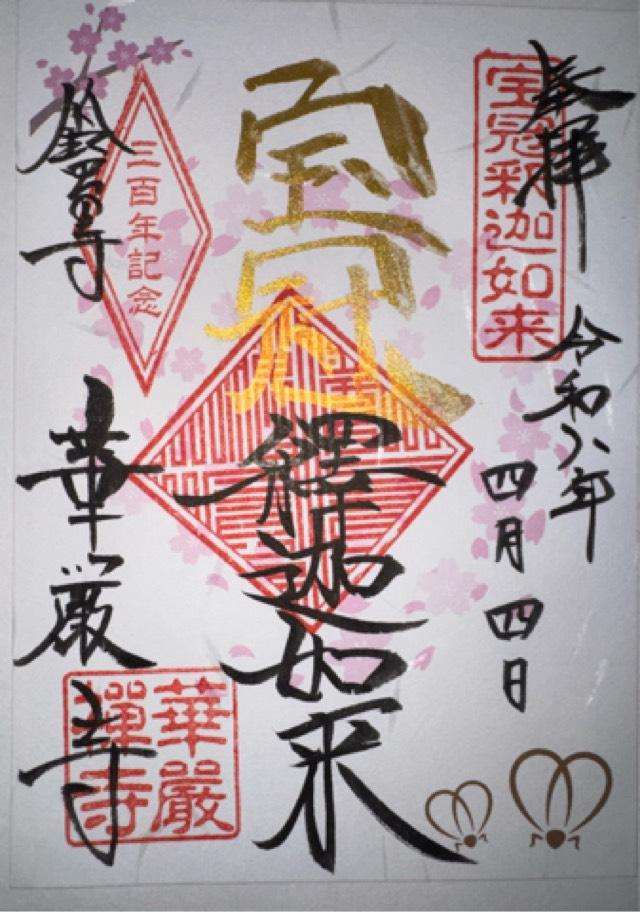 奉拝
令和八年
四月四日
宝冠釈迦如来
宝冠
釋迦如来
三百年記念
鈴虫寺
華厳寺
華嚴
禅寺